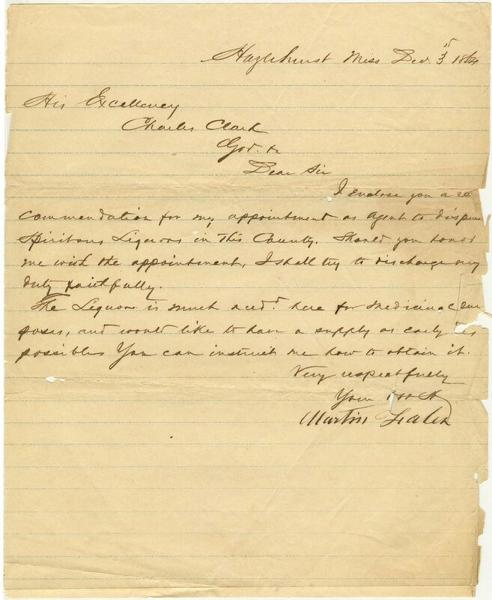 Hazlehurst Miss Dec. 3 1864
His Excellency
Charles Clark
Gov. &c
Dear Sir
I enclose you a re
commendation for my appointment as agent to dispense
Spiritous Liquors in this County. Should you honor
me with the appointment, I shall try to discharge my
duty faithfully.
The Liquor is much need. here for medicinal pur
poses, and would like to have a supply as early as
possible. You can instruct me how to obtain it.
Very respectfully
Your
Martin